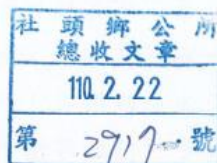 社頭鄉公所
總收文章
110. 2. 22
第 2917 號